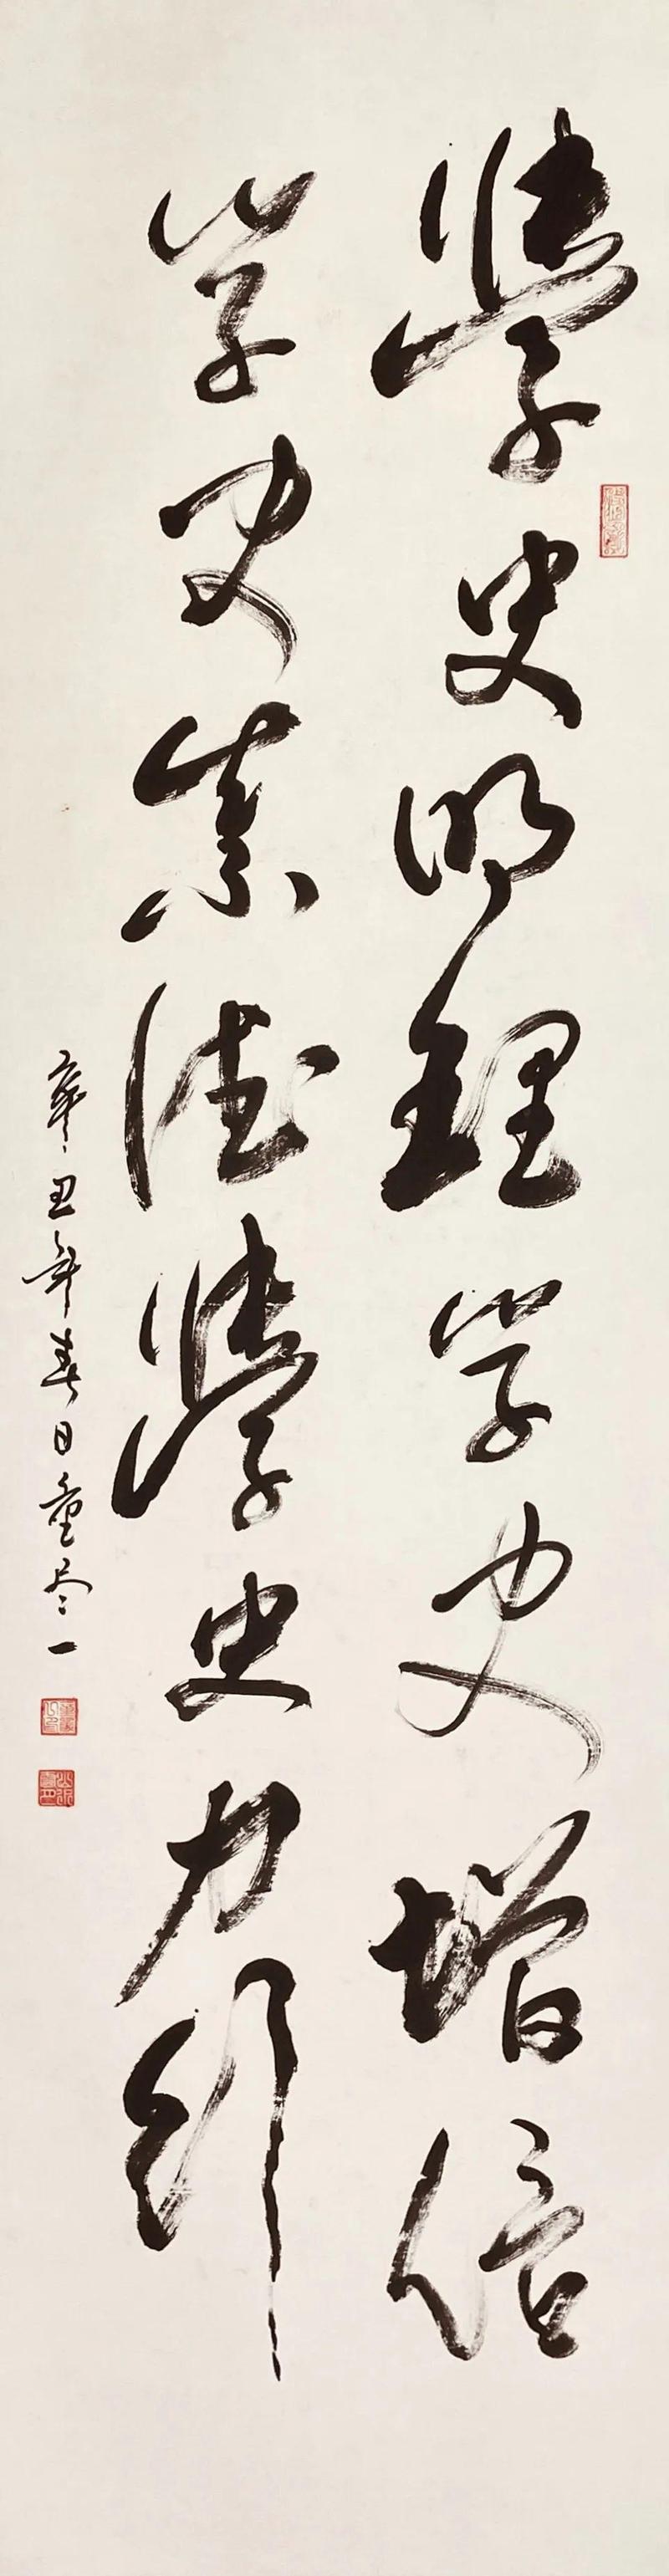 學史明理学史增信
学史崇德學史力行
辛丑年春日童一